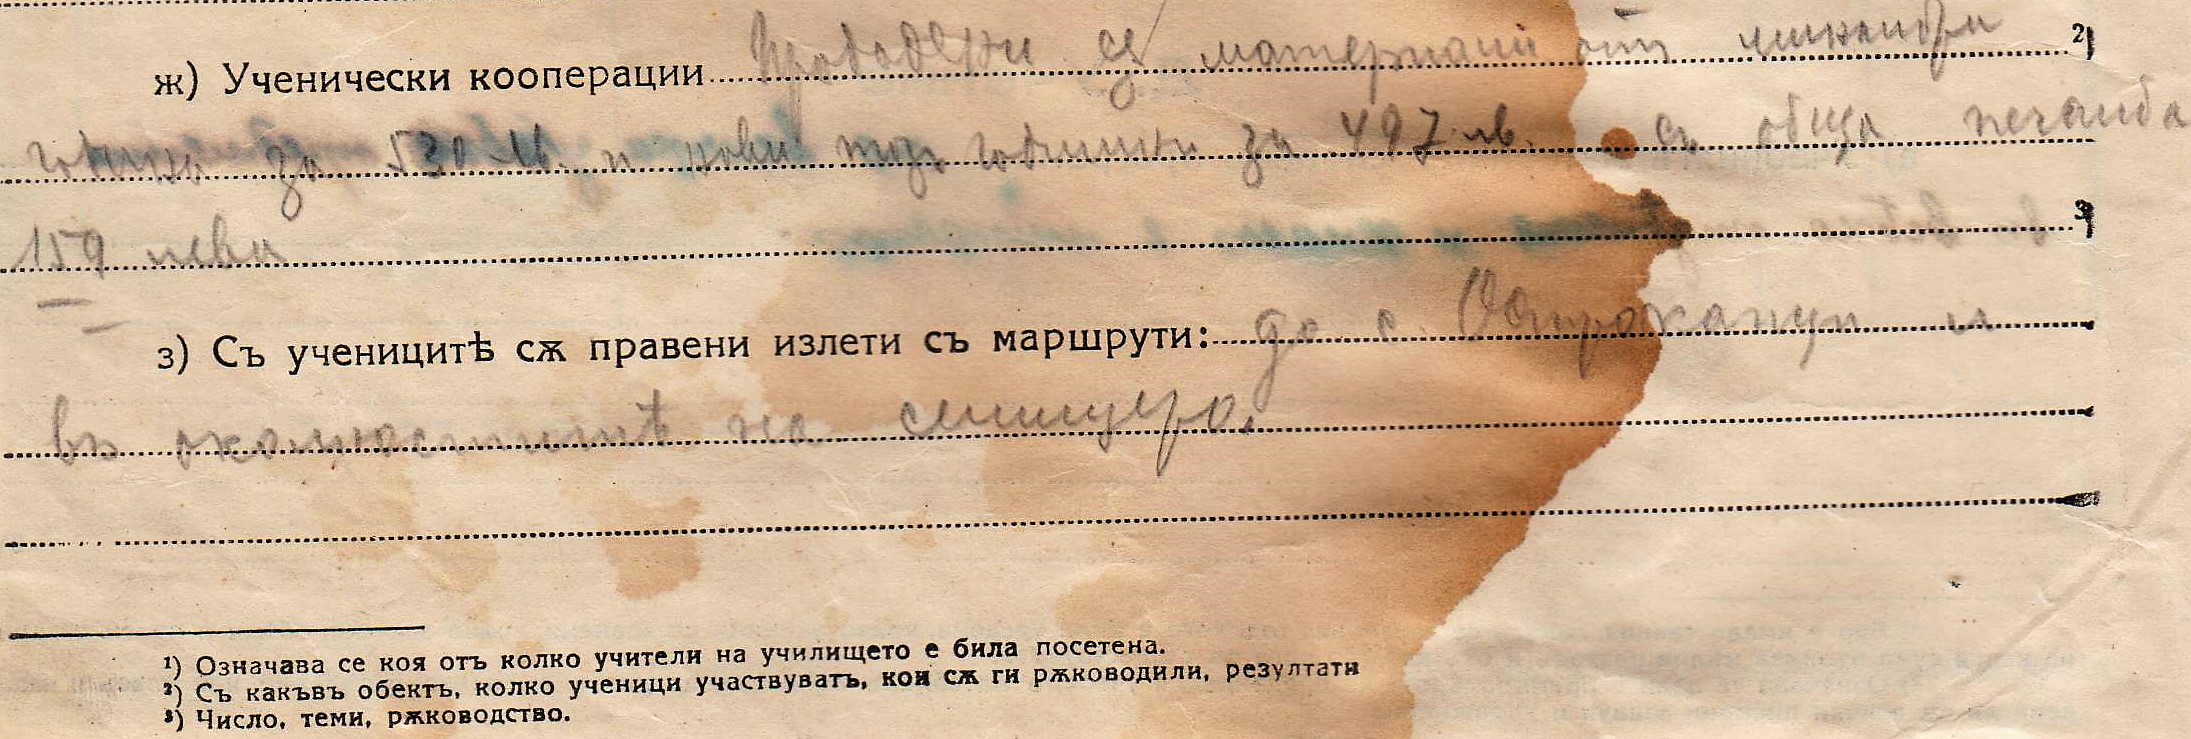 ж) Ученически кооперации Продадени сѫ материали отъ миналата 2)
година за 530 лв. и нови тази година за 497 лв. съ обща печалба
159 лева 3)
з) Съ ученицитѣ сѫ правени излети съ маршрути: до с. и
въ околноститѣ на
¹) Означава се коя отъ колко учители на училището е била посетена.
²) Съ какъвъ обектъ, колко ученици участвуватъ, кои сѫ ги рѫководили, резултати
³) Число, теми, рѫководство.